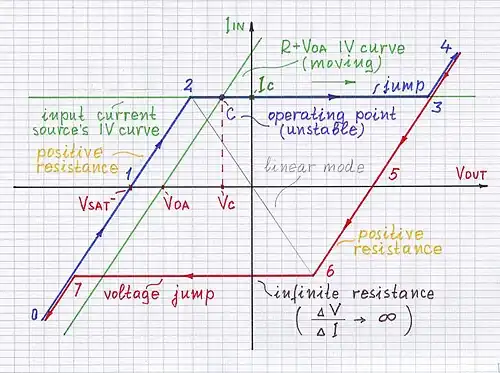 IIN
R+VOA IV curve
(moving)
4
2
IC
jump
C
3
input current
source's IV curve
operating point
(unstable)
positive
resistance
1
linear mode
5
VOUT
VSAT-
VOA
VC
positive
resistance
6
7
voltage jump
infinite resistance
0
( ΔV
ΔI → ∞ )